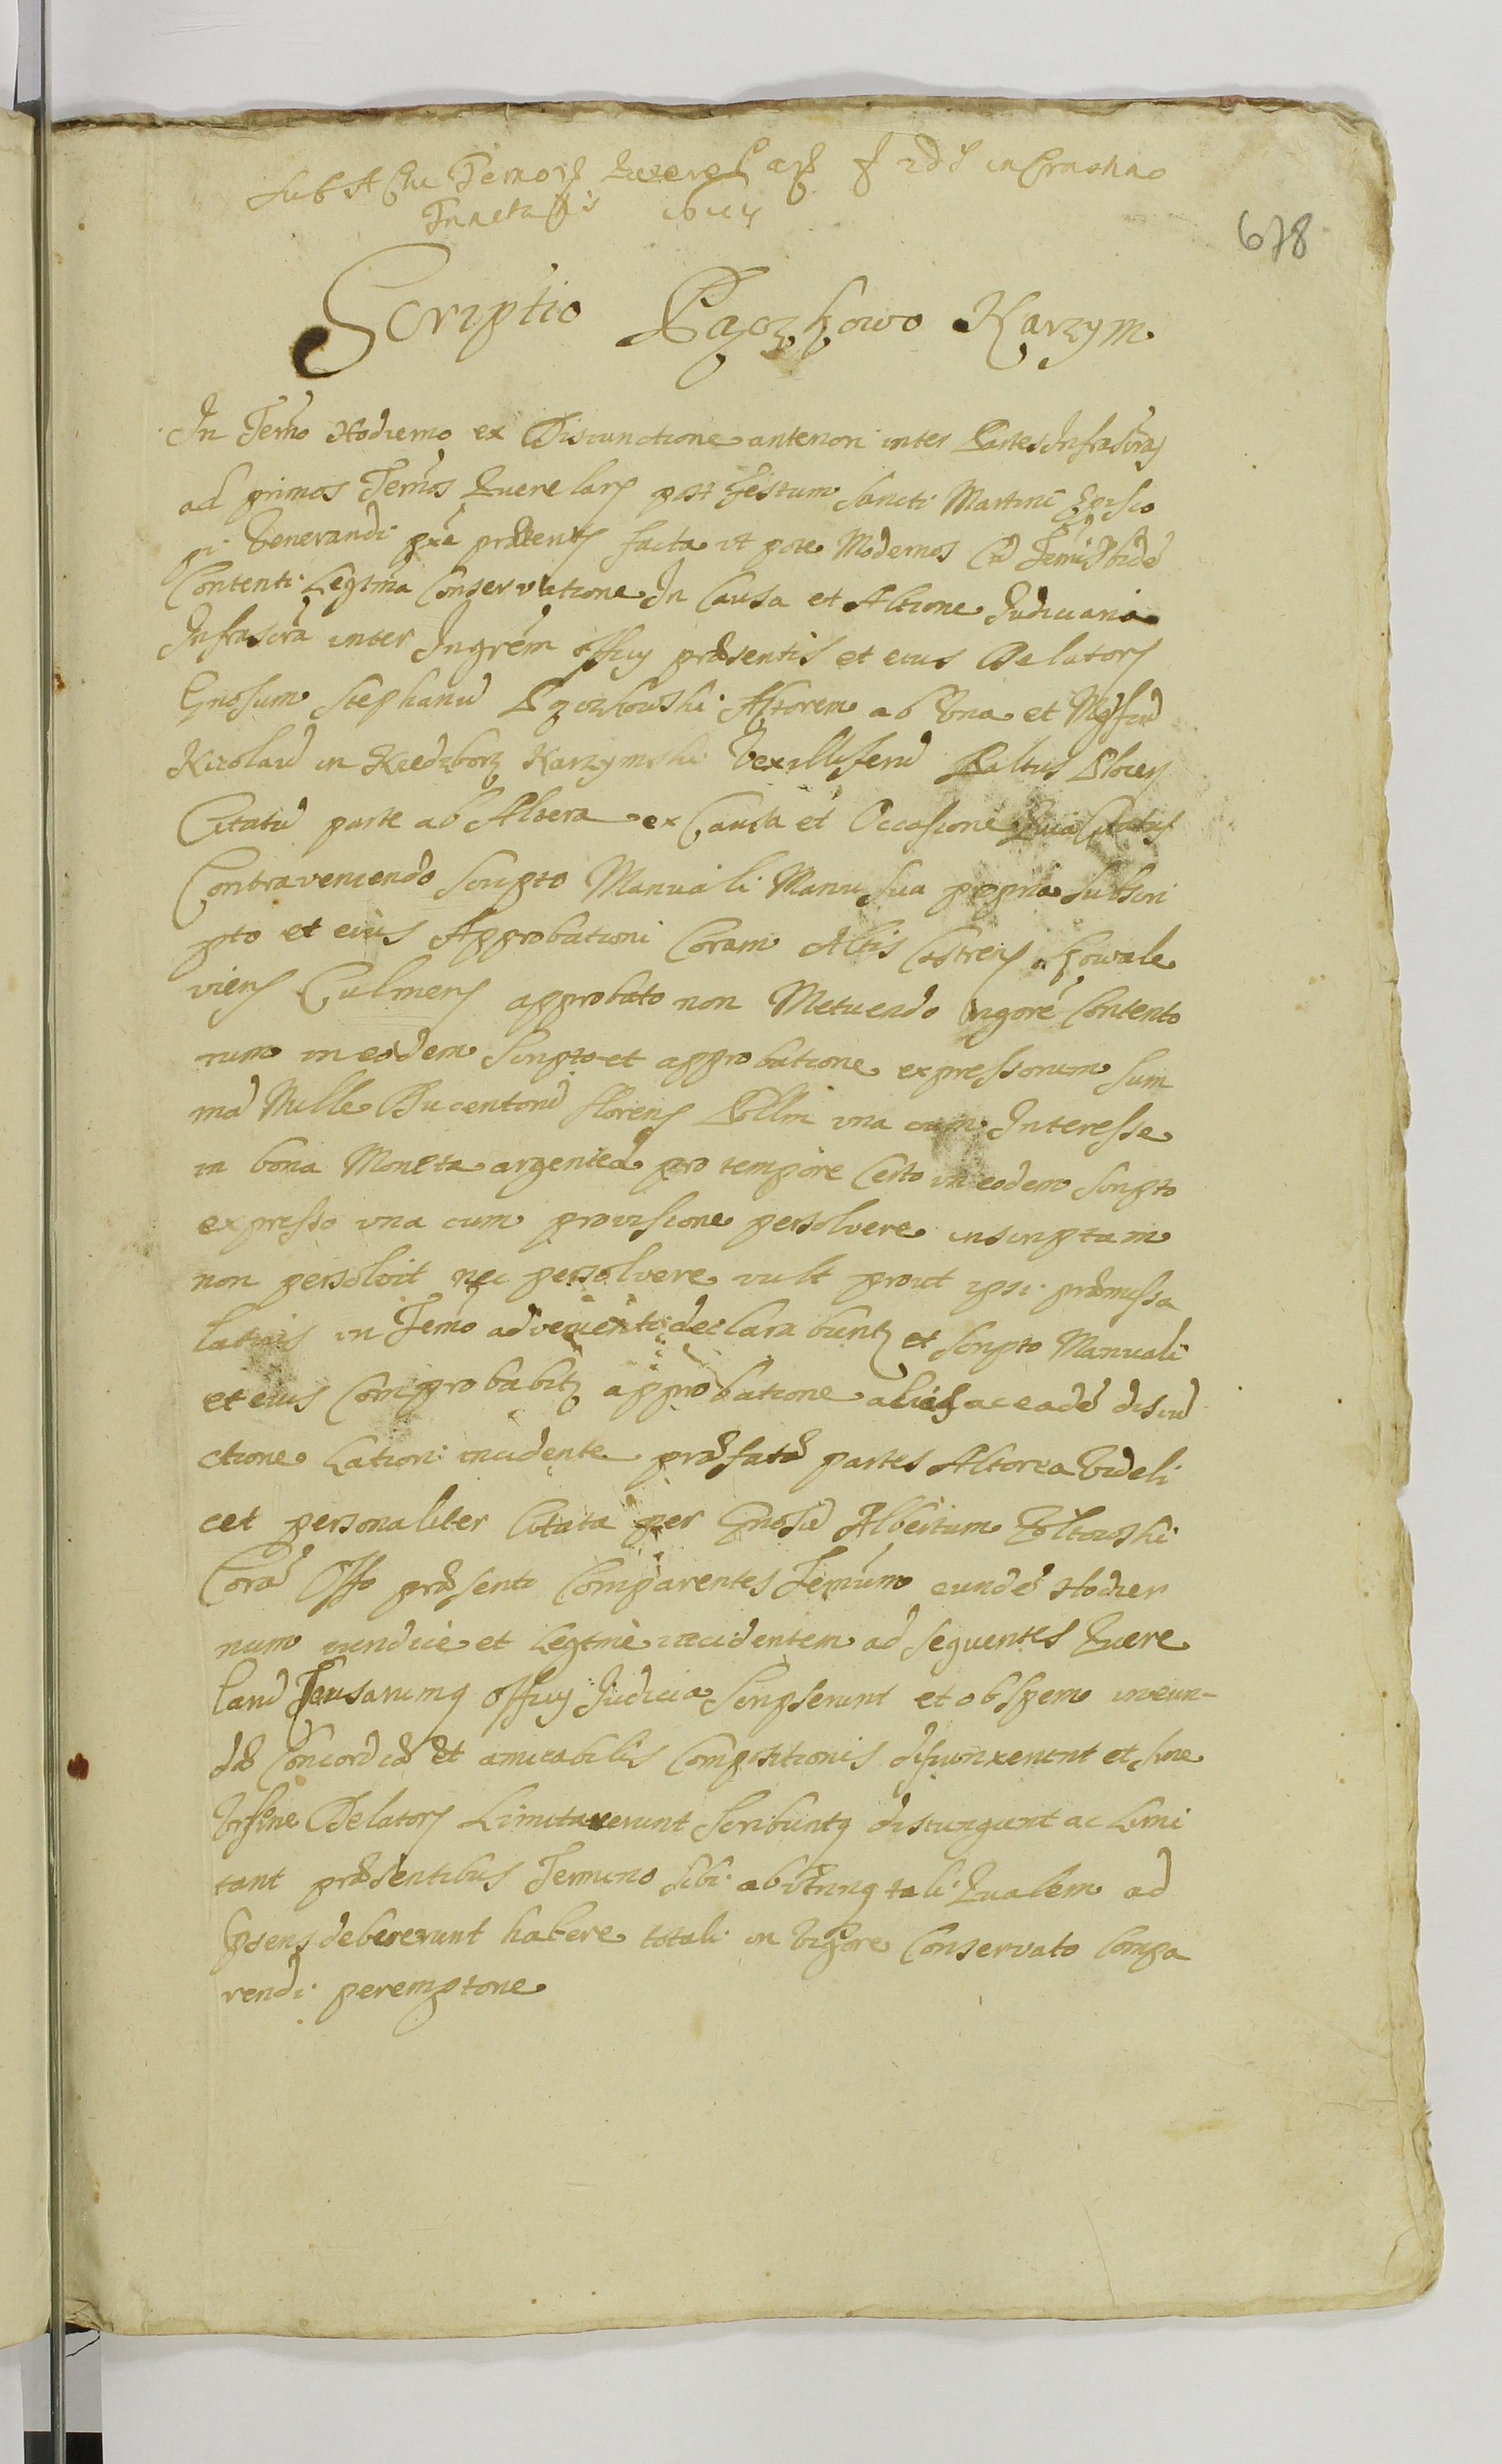 Sub A Termor Querelar f 2dd in Crastino
678
Scriptio Pączkowo Karzym
In Termo Hodierno ex Disiunctione anteriori inter Partes Infrascras
ad primos Termos Querelar post Festum Sancti Martini Episco
pi Venerandi facta ut pote Modernos Ibide
Contenti Legitma Conservatione In Causa et Actione Iudiciaria
Infrascra inter Ingrem Officy præsentis et eius Delatory
Gnosum Stephanu Pączkowski Actorem ab Una et Mgfcu
Nicolau in Niedzborz Karzymski Vexilliferu Paltus Plocen
Citatu parte ab Altera ex Causa et Occasione Quia Citatus
Contraveniendo Scripto Manuali Manu Sua propria Subscri
pto et eius Approbationi Coram Actis Castren Kowale
viens Culmens approbato non Metuendo vigore Contento
rum in eodem Scripto et approbatione expressorum Sum
ma Mille Ducentoru floreny Pollin una cum Interesse
in bona Moneta argentea pro tempore Certo in eodem Scripto
expresso una cum provisione persolvere inscriptam
non persolvit nec persolvere vult prout ipsi præmissa
latius in Termo advenienti declarabunt et Scripto Manuali
et eius Comprobabit approbatione ac eade disiu
ctione Lation incidente præfatæ partes Actorea Videli
cet personaliter Citata per Gnosu Albertum Zołtowski
Cora Offo præsenti Comparentes Terminum eunde Hodier
num iuridicè et Legtmè incidentem ad sequentes Quere
laru Causarumq officy Iudicia Scripserunt et ob Spem ineun-
dæ Concordiæ et amicabilis Compositionis disiunxerunt et Sine
Delatory Limitaverunt Scribuntq disiungunt ac Limi
tant præsentibus Termino Sibi ab utrinq tali Qualem ad
præsens debuerunt habere totali in Vigore Conservato Compa
rendi peremptorie